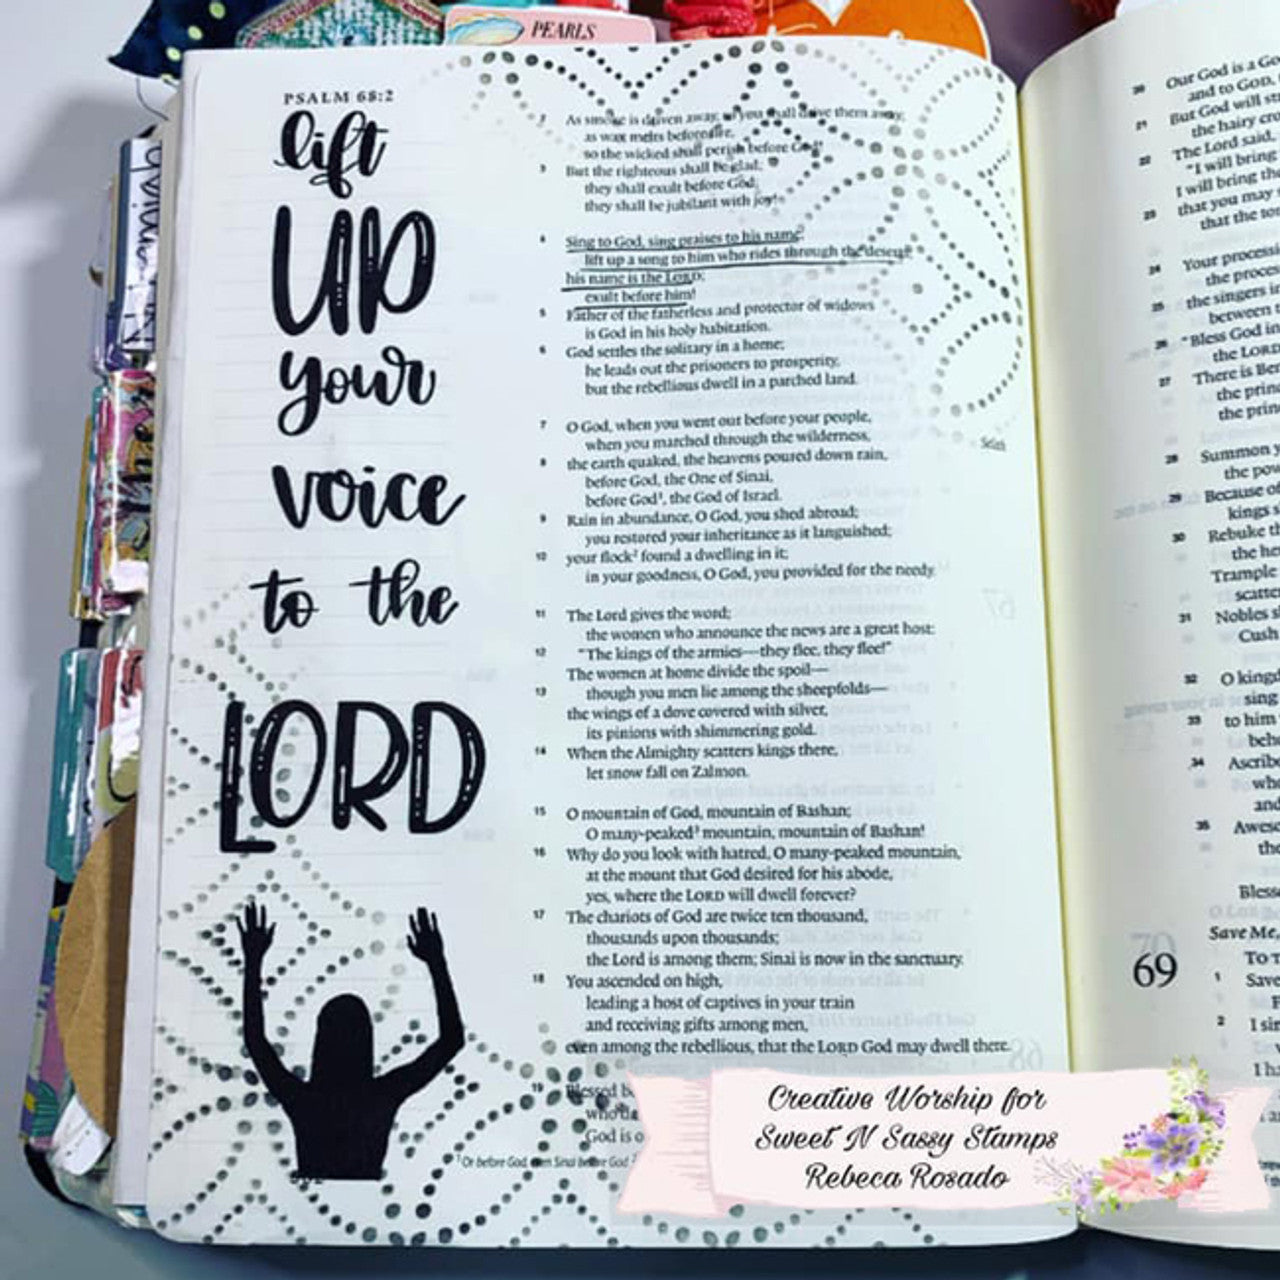 PEARLS
PSALM 68:2
lift
UP
your
voice
to the
LORD
As smoke is driven away, so you shall drive them away;
as wax melts before fire,
so the wicked shall perish before God!
3 But the righteous shall be glad;
they shall exult before God;
they shall be jubilant with joy!
4 Sing to God, sing praises to his name;
lift up a song to him who rides through the deserts;
his name is the LORD;
exult before him!
5 Father of the fatherless and protector of widows
is God in his holy habitation.
6 God settles the solitary in a home;
he leads out the prisoners to prosperity,
but the rebellious dwell in a parched land.
7 O God, when you went out before your people,
when you marched through the wilderness,
Selah
8 the earth quaked, the heavens poured down rain,
before God, the One of Sinai,
before God¹, the God of Israel.
9 Rain in abundance, O God, you shed abroad;
you restored your inheritance as it languished;
10 your flock² found a dwelling in it;
in your goodness, O God, you provided for the needy.
11 The Lord gives the word;
the women who announce the news are a great host:
12 "The kings of the armies—they flee, they flee!"
The women at home divide the spoil—
13 though you men lie among the sheepfolds—
the wings of a dove covered with silver,
its pinions with shimmering gold.
14 When the Almighty scatters kings there,
let snow fall on Zalmon.
15 O mountain of God, mountain of Bashan;
O many-peaked³ mountain, mountain of Bashan!
16 Why do you look with hatred, O many-peaked mountain,
at the mount that God desired for his abode,
yes, where the LORD will dwell forever?
17 The chariots of God are twice ten thousand,
thousands upon thousands;
the Lord is among them; Sinai is now in the sanctuary.
18 You ascended on high,
leading a host of captives in your train
and receiving gifts among men,
even among the rebellious, that the LORD God may dwell there.
19 Blessed b
who da
God is o
¹ Or before God, even Sinai before God
20 Our God is a Go
and to GOD,
21 But God will str
the hairy cro
22 The Lord said,
"I will bring
I will bring the
23 that you may
that the to
24 Your processi
the proces
25 the singers in
between
26 "Bless God in
the LORD
27 There is Ben
the prin
the prin
28 Summon y
the pow
29 Because of
kings s
30 Rebuke th
the he
Trample
scatte
31 Nobles s
Cush
32 O kingd
sing
33 to him
beho
34 Ascribe
who
and
35 Aweso
the
Blesse
Save Me,
69
TO T
1 Save
F
2 I sin
I ha
Creative Worship for
Sweet N Sassy Stamps
Rebeca Rosado